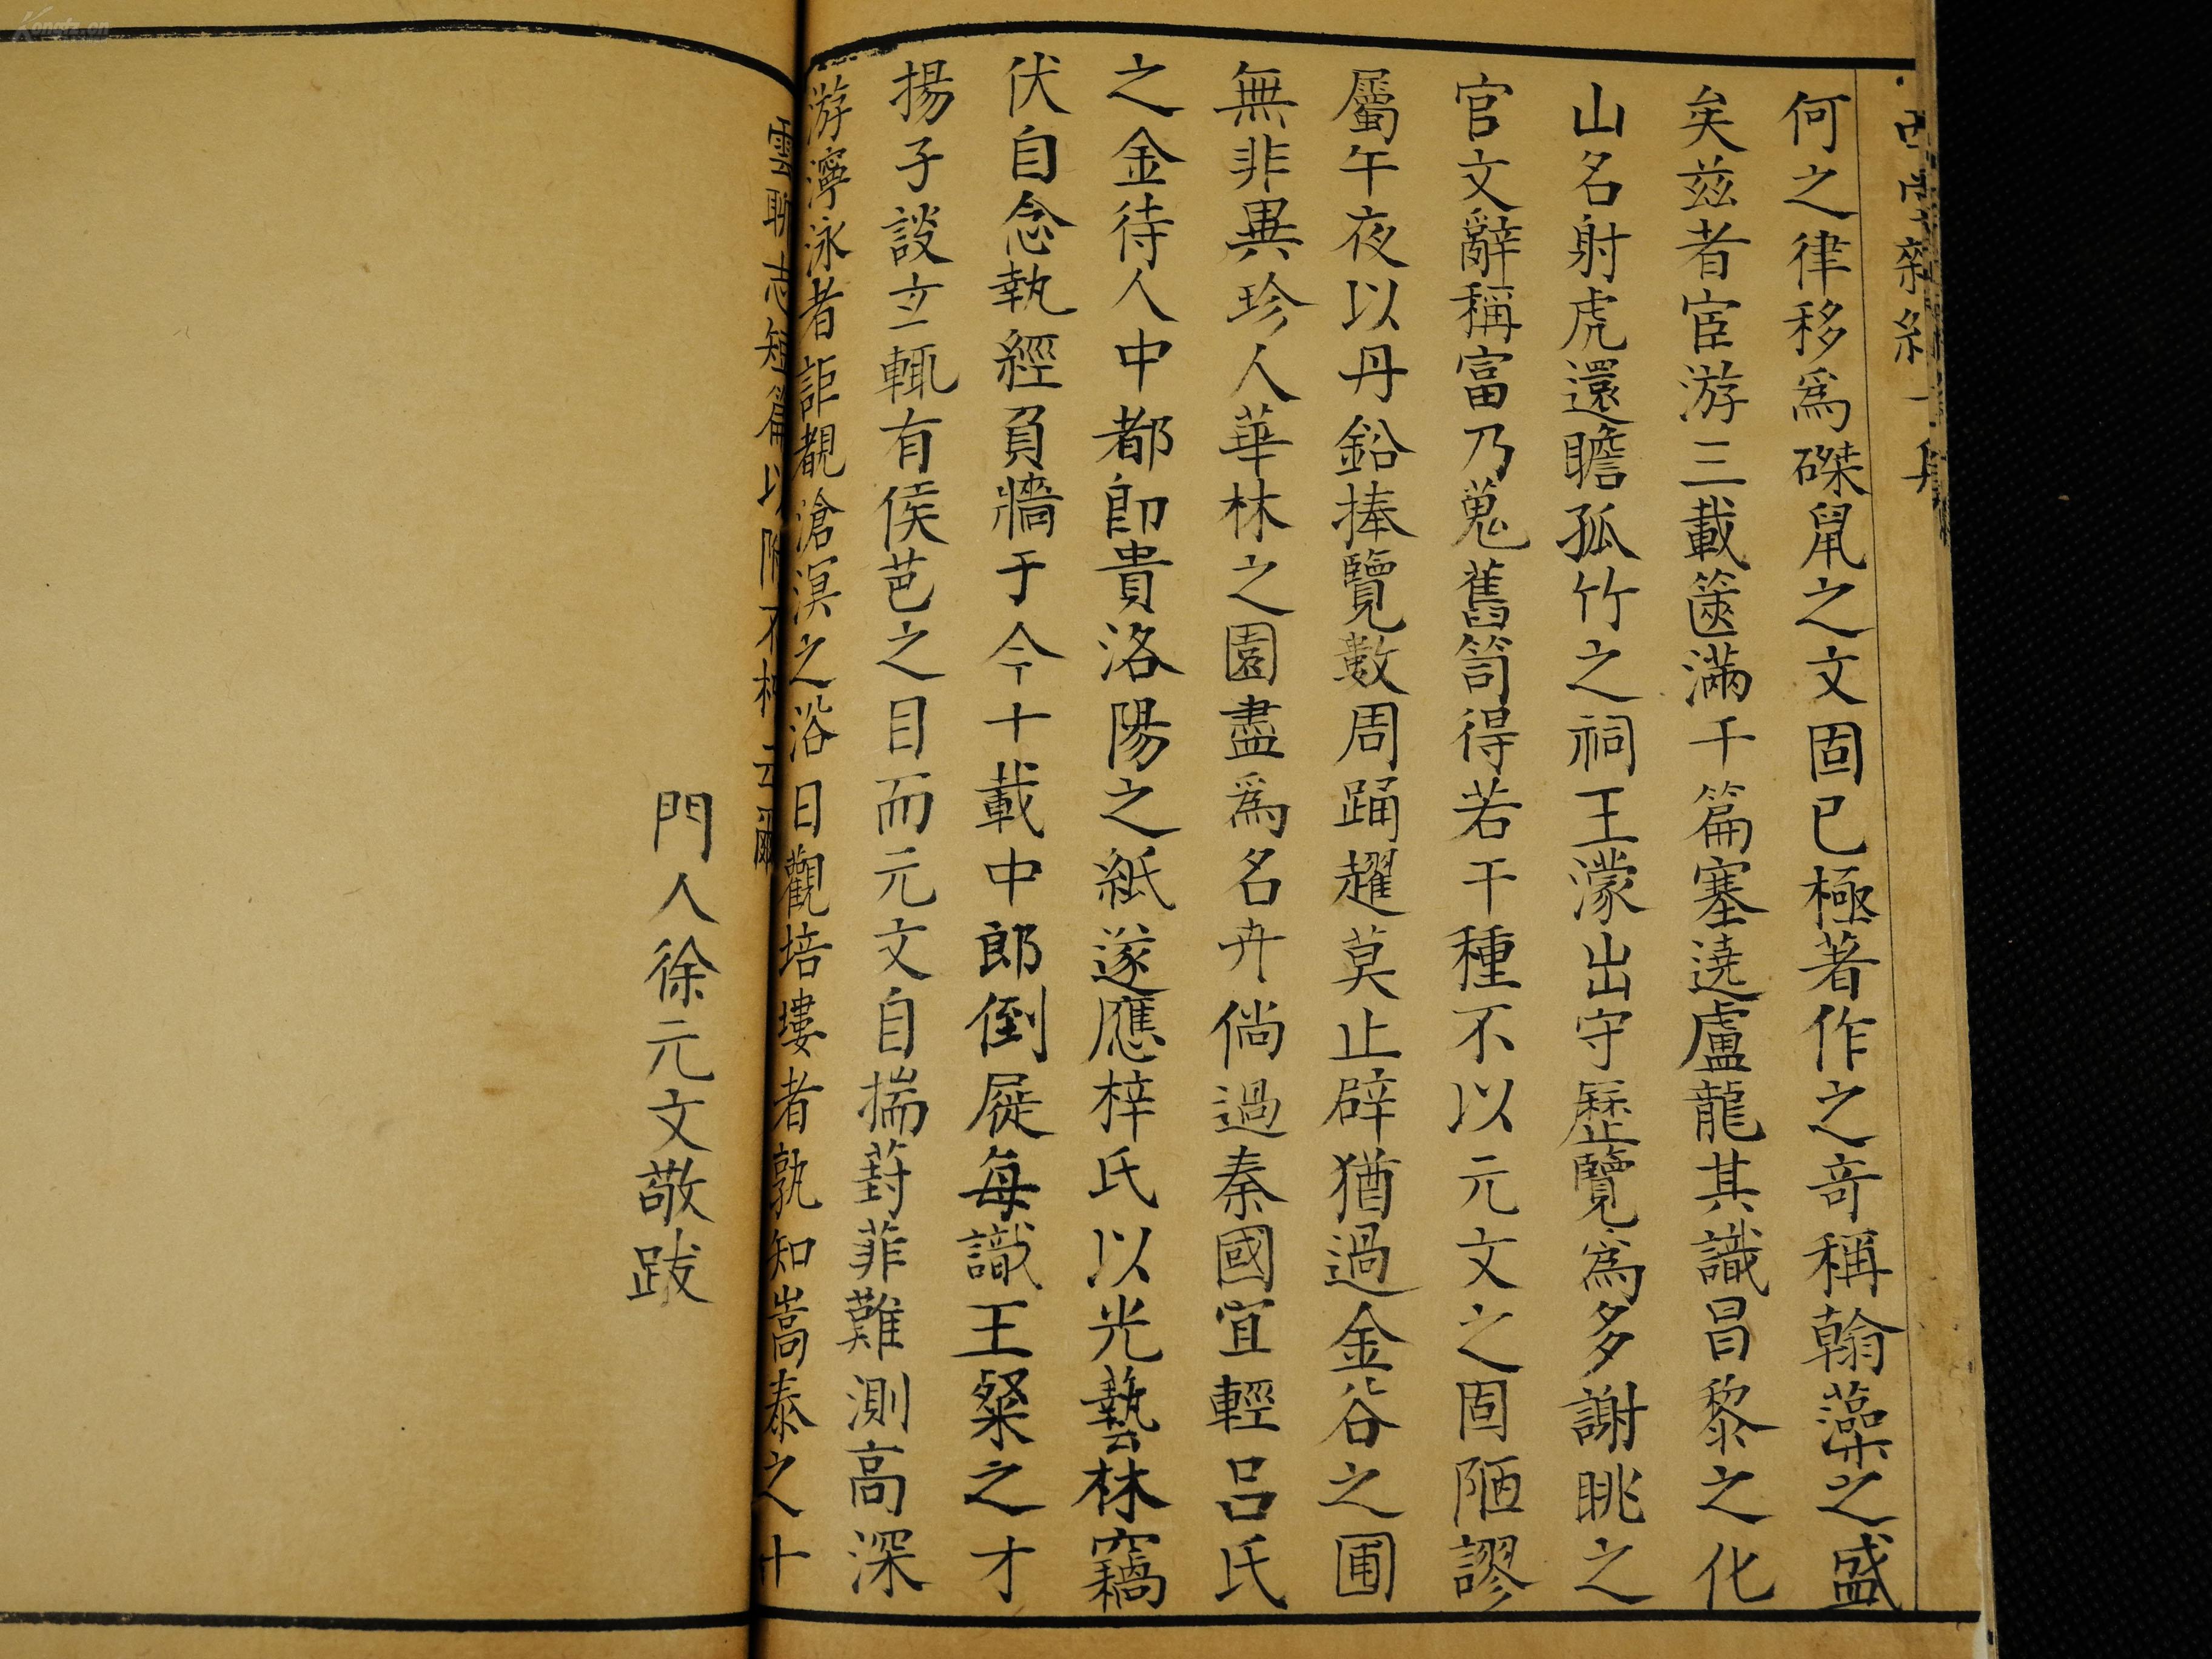 何之律移爲磔鼠之文固已極著作之奇稱翰藻之盛
矣茲者宦游三載篋滿千篇塞遶盧龍其識昌黎之化
山名射虎還瞻孤竹之祠王濛出守歷覽爲多謝眺之
官文辭稱富乃蒐舊笥得若干種不以元文之固陋謬
屬午夜以丹鉛捧覽數周踊躍莫止辟猶過金谷之圃
無非異珍人華林之園盡爲名卉倘過秦國宜輕呂氏
之金待人中都卽貴洛陽之紙遂應梓氏以光藝林竊
伏自念執經負牆于今十載中郎倒屣每識王粲之才
揚子談玄輒有侯芭之目而元文自揣葑菲難測高深
游濘泳者詎覩滄溟之浴日觀培塿者孰知嵩泰之十
雲聊志短篇以附不朽云爾
門人徐元文敬跋
Kongfz.cn